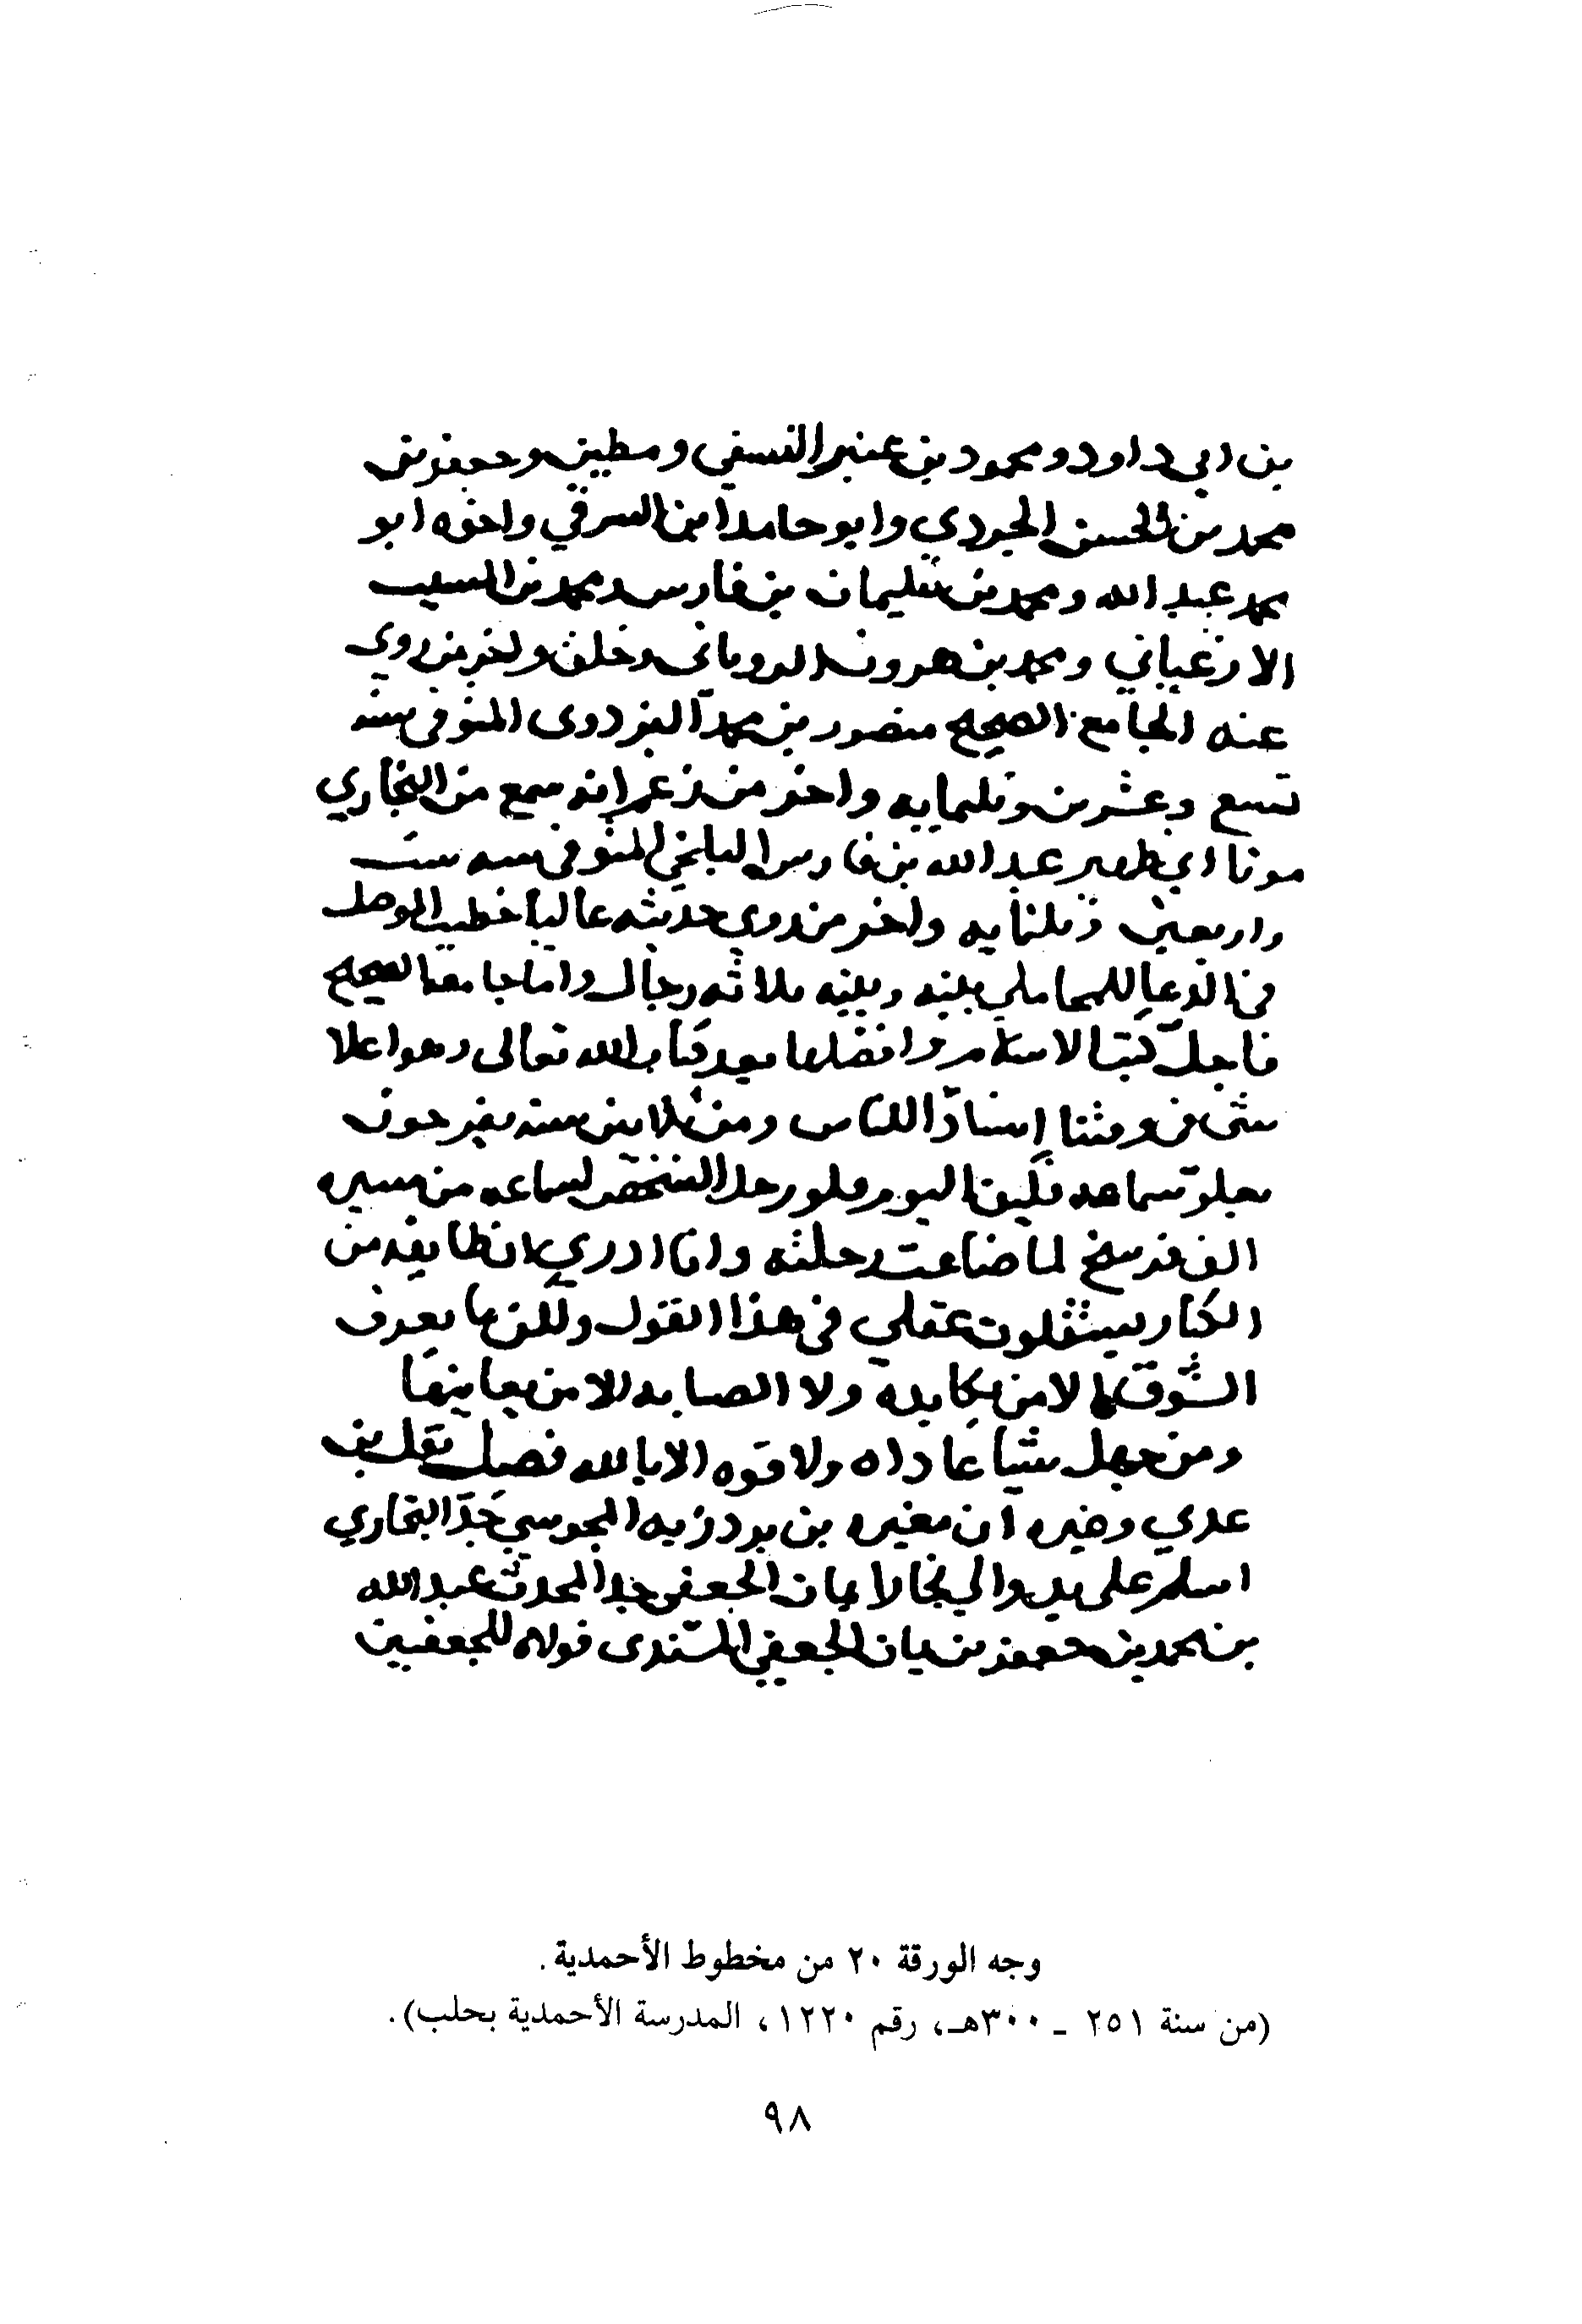 بن ابي داود ومحمود بن عنبر النسفي ومطين وجعفر بن
محمد بن الحسن الجرودي وابو حامد ابن الشرقي واخوه ابو
محمد عبد الله ومحمد بن سليمان بن فارس ومحمد بن المسيب
الارغياني ومحمد بن هرون الروياني وخلق واخر من روى
عنه الجامع الصحيح منصور بن محمد البزدوى المتوفى سنه
تسع وعشرين وثلثمايه واخر من زعم انه سمع من البخاري
موتا ابي ظهير عبد الله بن فارس البلخي المتوفى سنه ست
واربعين وثلثمايه واخر من روى حديثه عاليا خطيب الموصل
فى الدعا للمحاملي بينه وبينه ثلاثه رجال واما جامعه الصحيح
فاجل كتب الاسلام وافضلها بعد كتاب الله تعالى وهو اعلا
شى فى وقتنا إسنادا للناس ومن ثلاثين سنه يفرحون
بعلو سماعه فكيف اليوم فلو رحل الشخص لسماعه من مسيره
الف فرسخ لما ضاعت رحلته وانا ادري ان طايفه من
الكبار يستقلون عقلي فى هذا القول ولكن ما يعرف
الشوق الا من يكابده ولا الصبابه الا من يعانيها
ومن جهل شيا عاداه ولا قوه الا بالله فصل نقل بن
عدي وغيره ان مغيره بن بردزبه المجوسي جد البخاري
اسلم على يد والي بخارا يمان الجعفى جد المحدث عبد الله
بن محمد بن جعفر بن يمان الجعفي المسندى فولاه للجعفيين
وجه الورقة ٢٠ من مخطوط الأحمدية.
(من سنة ٢٥١ ـ ٣٠٠هـ، رقم ١٢٢٠، المدرسة الأحمدية بحلب).
٩٨